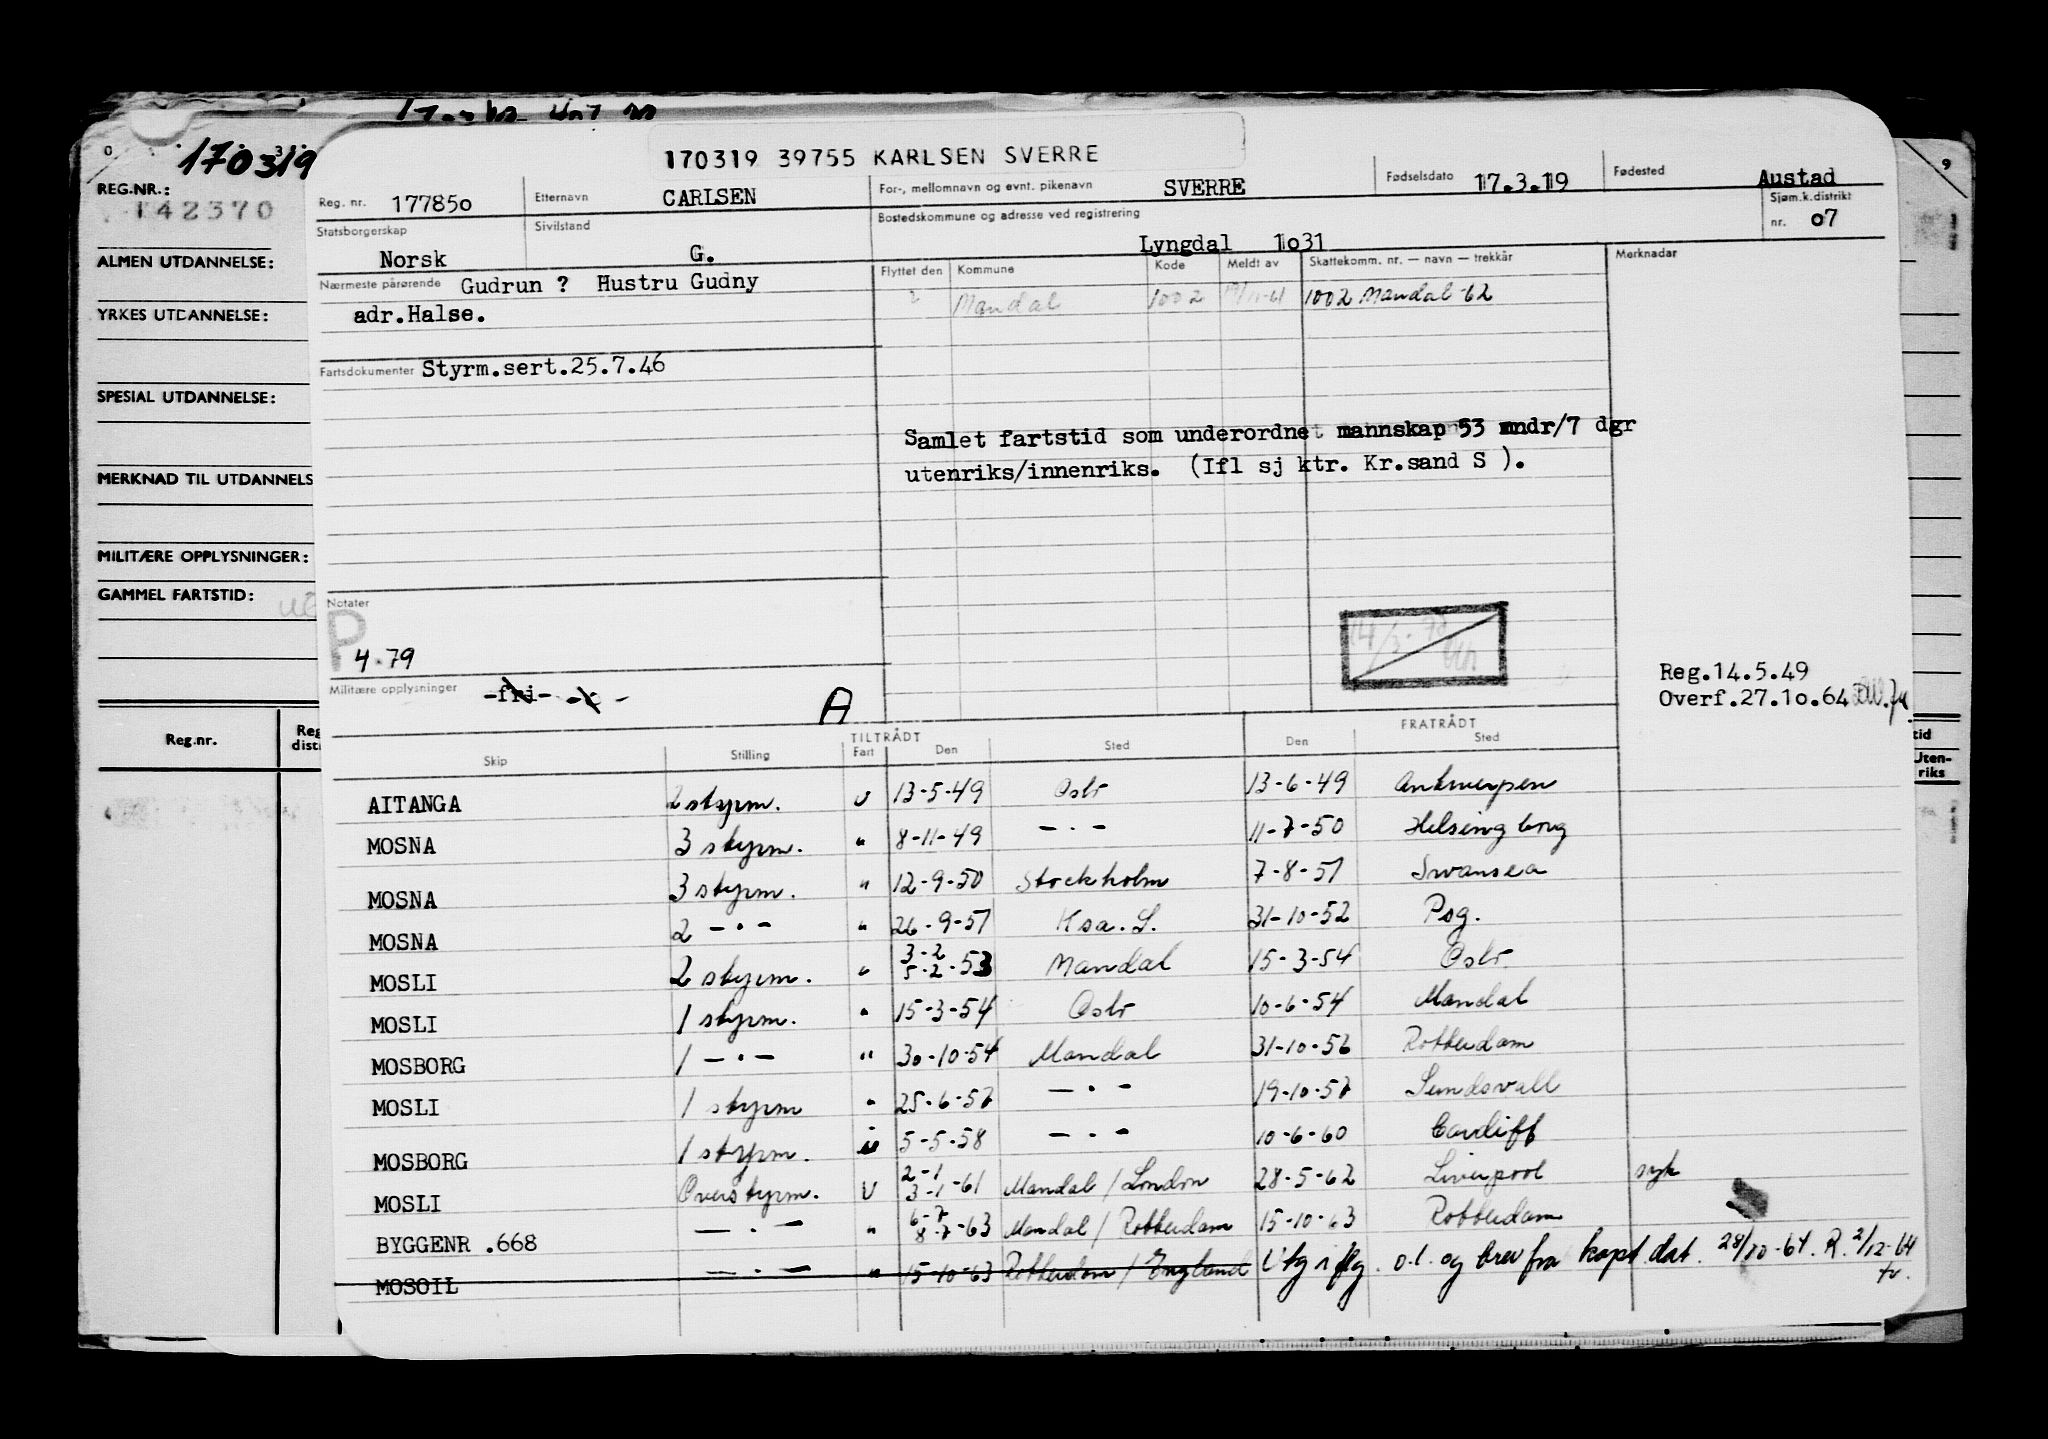 170319
170319 39755 KARLSEN SVERRE
REG.NR.:
142370
ALMEN UTDANNELSE:
YRKES UTDANNELSE:
SPESIAL UTDANNELSE:
MERKNAD TIL UTDANNELS
MILITÆRE OPPLYSNINGER:
GAMMEL FARTSTID:
Reg.nr.
Reg
dist
Reg. nr. 17785o Etternavn CARLSEN For-, mellomnavn og evnt. pikenavn SVERRE Fødselsdato 17.3.19 Fødested Austad
Statsborgerskap Norsk Sivilstand G. Bostedskommune og adresse ved registrering Lyngdal 1o31 Sjøm.k.distrikt nr. o7
Nærmeste pårørende Gudrun ? Hustru Gudny
adr.Halse.
Flyttet den Kommune Kode Meldt av Skattekomm. nr. — navn — trekkår Merknadar
Mandal 1002 1002 Mandal 62
Fartsdokumenter Styrm.sert.25.7.46
Samlet fartstid som underordnet mannskap 53 mndr/7 dgr
utenriks/innenriks. (Ifl sj ktr. Kr.sand S ).
Notater
P
4.79
Militære opplysninger -fri-
A
Reg.14.5.49
Overf.27.1o.64
TILTRÅDT FRATRÅDT
Skip Stilling Fart Den Sted Den Sted
AITANGA 2 styrm. U 13-5-49 Oslo 13-6-49 Antwerpen
MOSNA 3 styrm. " 8-11-49 — · — 11-7-50 Helsingborg
MOSNA 3 styrm. " 12-9-50 Stockholm 7-8-51 Swansea
MOSNA 2 — · — " 26-9-51 Ksa. S. 31-10-52 Psg.
3-2
MOSLI 2 styrm. " 5-2-53 Mandal 15-3-54 Oslo
MOSLI 1 styrm. " 15-3-54 Oslo 10-6-54 Mandal
MOSBORG 1 — · — " 30-10-54 Mandal 31-10-56 Rotterdam
MOSLI 1 styrm " 25-6-57 — · — 19-10-57 Sundsvall
MOSBORG 1 styrm. " 5-5-58 — · — 10-6-60 Cardiff
2-1
MOSLI Overstyrm. U 3-1-61 Mandal / London 28-5-62 Liverpool syk
6-7
BYGGENR .668 — · — " 8-7-63 Mandal / Rotterdam 15-10-63 Rotterdam
MOSOIL — · — " 15-10-63 Rotterdam / England Utg iflg. o.l. og brev fra kapt. dat. 28/10-64. R. 2/12-64
tid
Uten-
riks